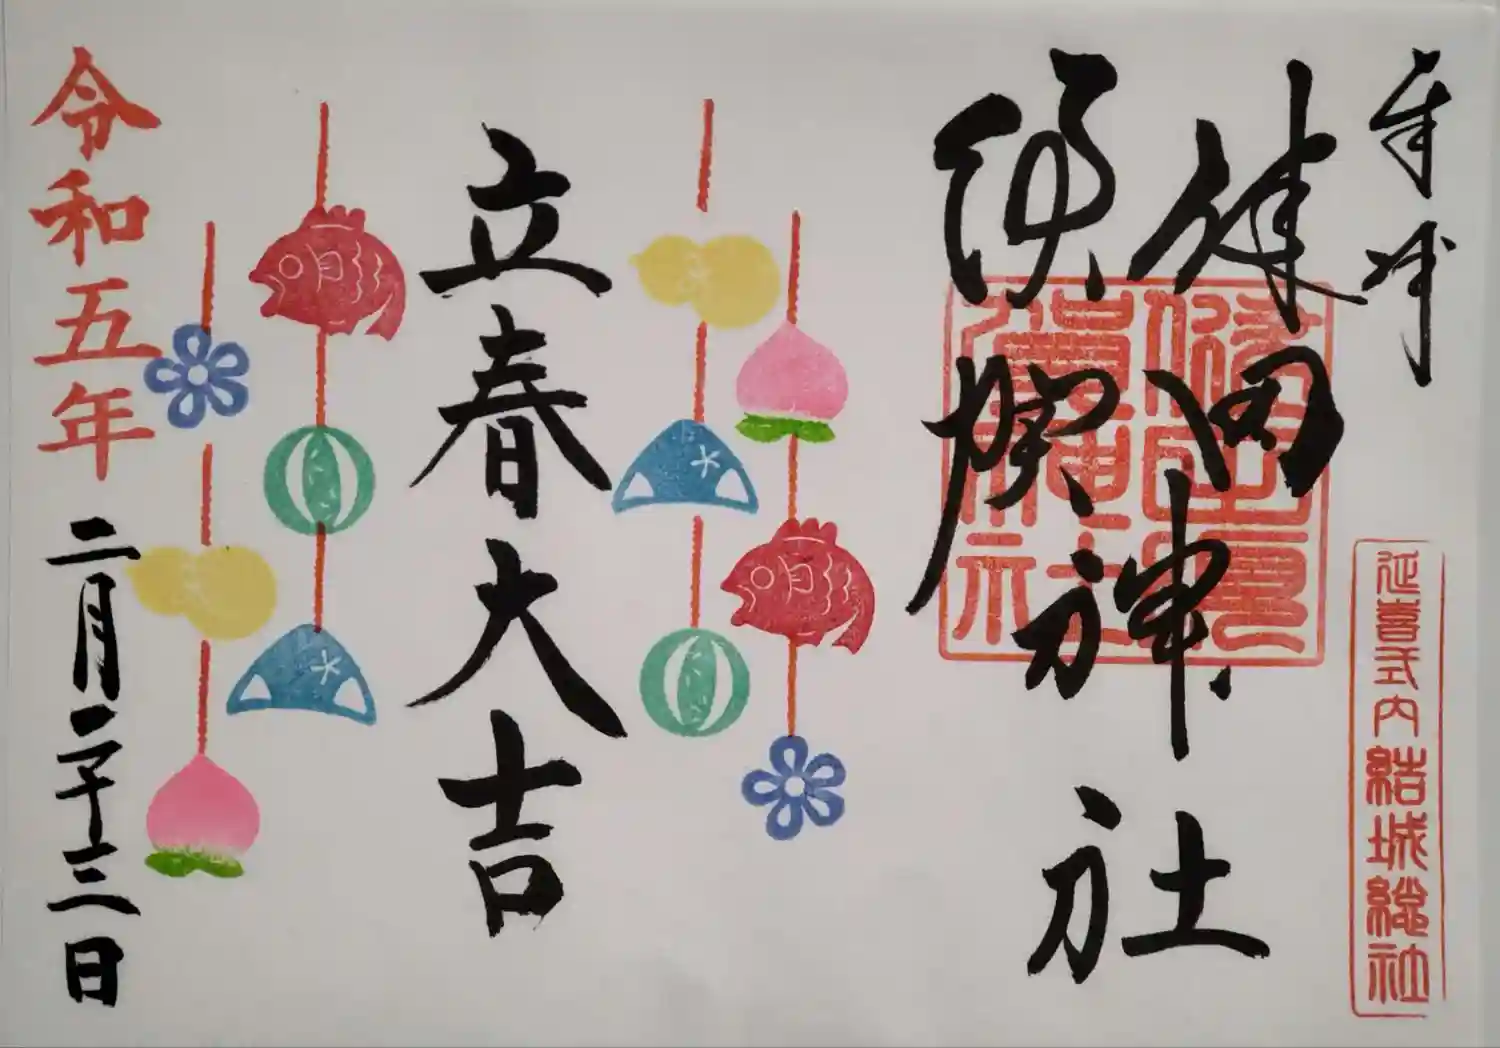 奉拝
健田
須賀
神社
延喜式内結城総社
健田須賀神社
立春大吉
令和五年
二月二十三日